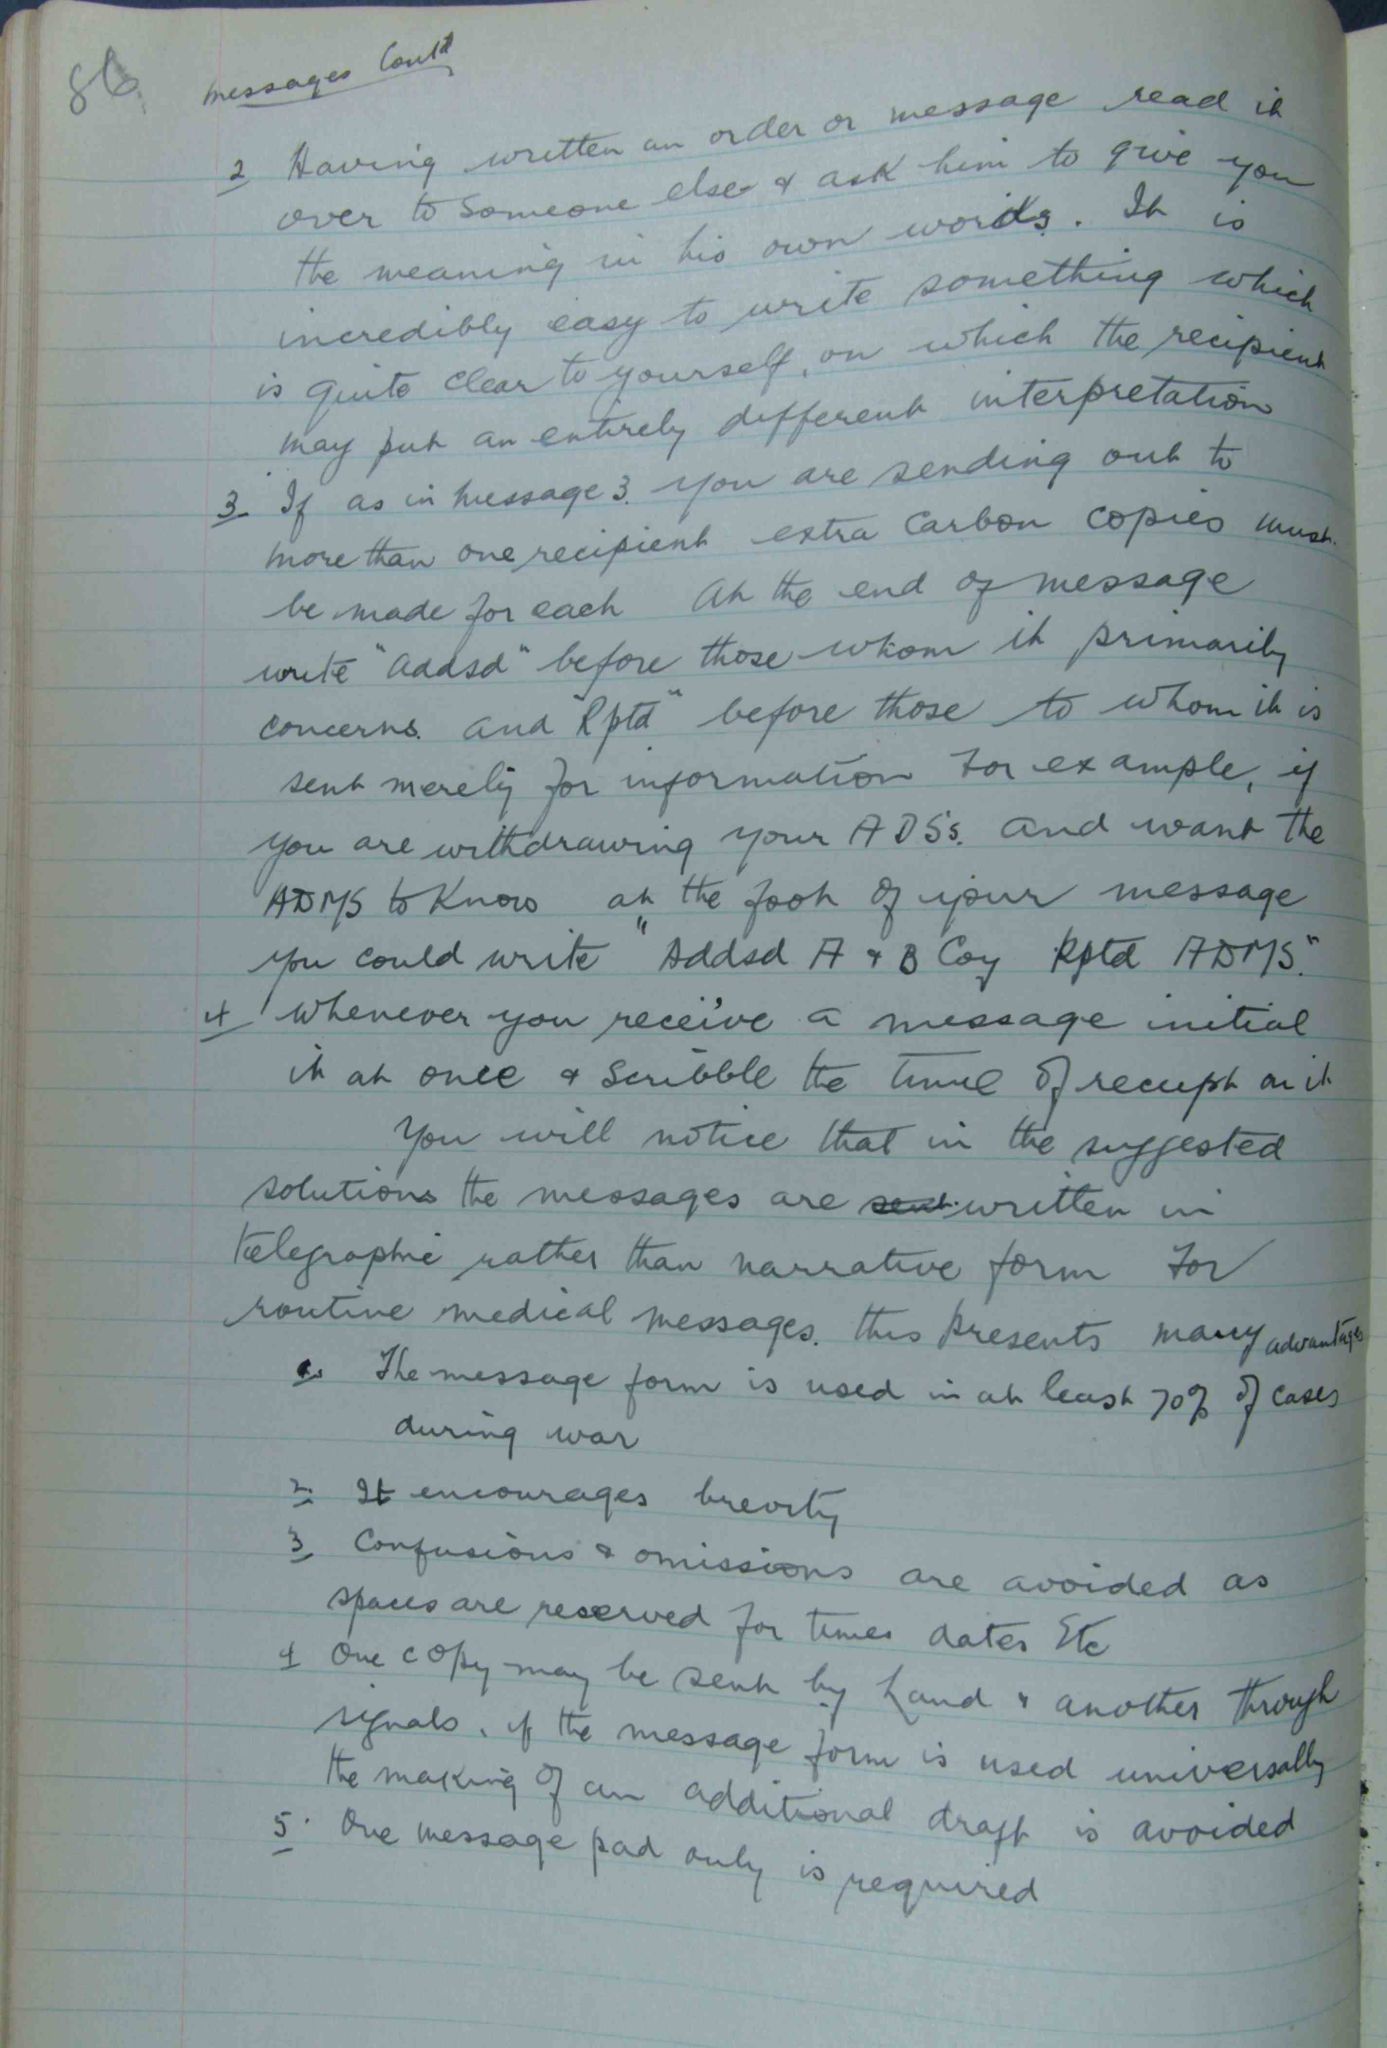 86.
Messages Contd
2 Having written an order or message read it
over to someone else & ask him to give you
the meaning in his own words. It is
incredibly easy to write something which
is quite clear to yourself, on which the recipient
may put an entirely different interpretation
3 If as in Message 3. you are sending out to
more than one recipient extra carbon copies must
be made for each At the end of message
write "Addsd" before those whom it primarily
concerns. and "Rptd" before those to whom it is
sent merely for information For example, if
you are withdrawing your ADSs. and want the
ADMS to know at the foot of your message
you could write "Addsd A & B Coy Rptd ADMS."
4 Whenever you receive a message initial
it at once & scribble the time of receipt on it
You will notice that in the suggested
solutions the messages are sent written in
telegraphic rather than narrative form For
routine medical messages. this presents many advantages
1. The message form is used in at least 70% of cases
during war
2. It encourages brevity
3 Confusions & omissions are avoided as
spaces are reserved for times dates Etc
4 One copy may be sent by hand & another through
signals. if the message form is used universally
the making of an additional draft is avoided
5. One message pad only is required